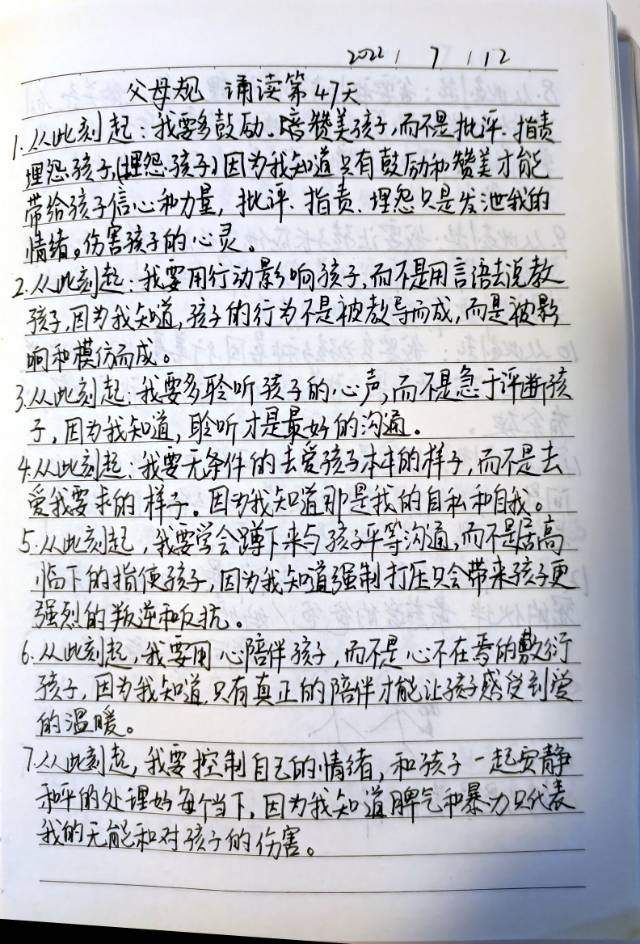 2022 / 7 / 12
父母规 诵读第47天
1.从此刻起：我要多鼓励.赞美孩子,而不是批评.指责
埋怨孩子,(埋怨.孩子)因为我知道只有鼓励和赞美才能
带给孩子信心和力量，批评.指责.埋怨只是发泄我的
情绪。伤害孩子的心灵。
2.从此刻起:我要用行动影响孩子,而不是用言语去说教
孩子,因为我知道,孩子的行为不是被教导而成,而是被影
响和模仿而成。
3.从此刻起:我要多聆听孩子的心声,而不是急于评断孩
子,因为我知道,聆听才是最好的沟通。
4.从此刻起:我要无条件的去爱孩子本来的样子,而不是去
爱我要求的样子.因为我知道那是我的自私和自我。
5.从此刻起,我要学会蹲下来与孩子平等沟通,而不是居高
临下的指使孩子,因为我知道强制打压只会带来孩子更
强烈的叛逆和反抗。
6.从此刻起,我要用心陪伴孩子,而不是心不在焉的敷衍
孩子,因为我知道.只有真正的陪伴才能让孩子感受到爱
的温暖。
7.从此刻起,我要控制自己的情绪,和孩子一起安静
和平的处理好每个当下,因为我知道脾气和暴力只代表
我的无能和对孩子的伤害。